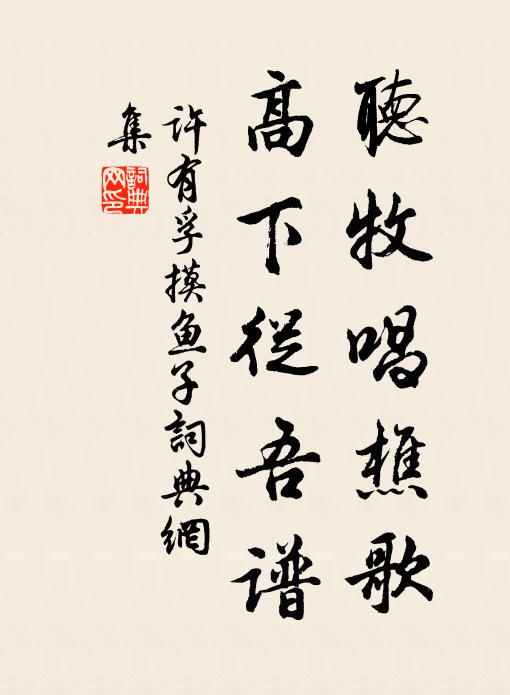 聽牧唱樵歌
高下從吾譜
许有孚摸鱼子詞典網
集
詞典网印